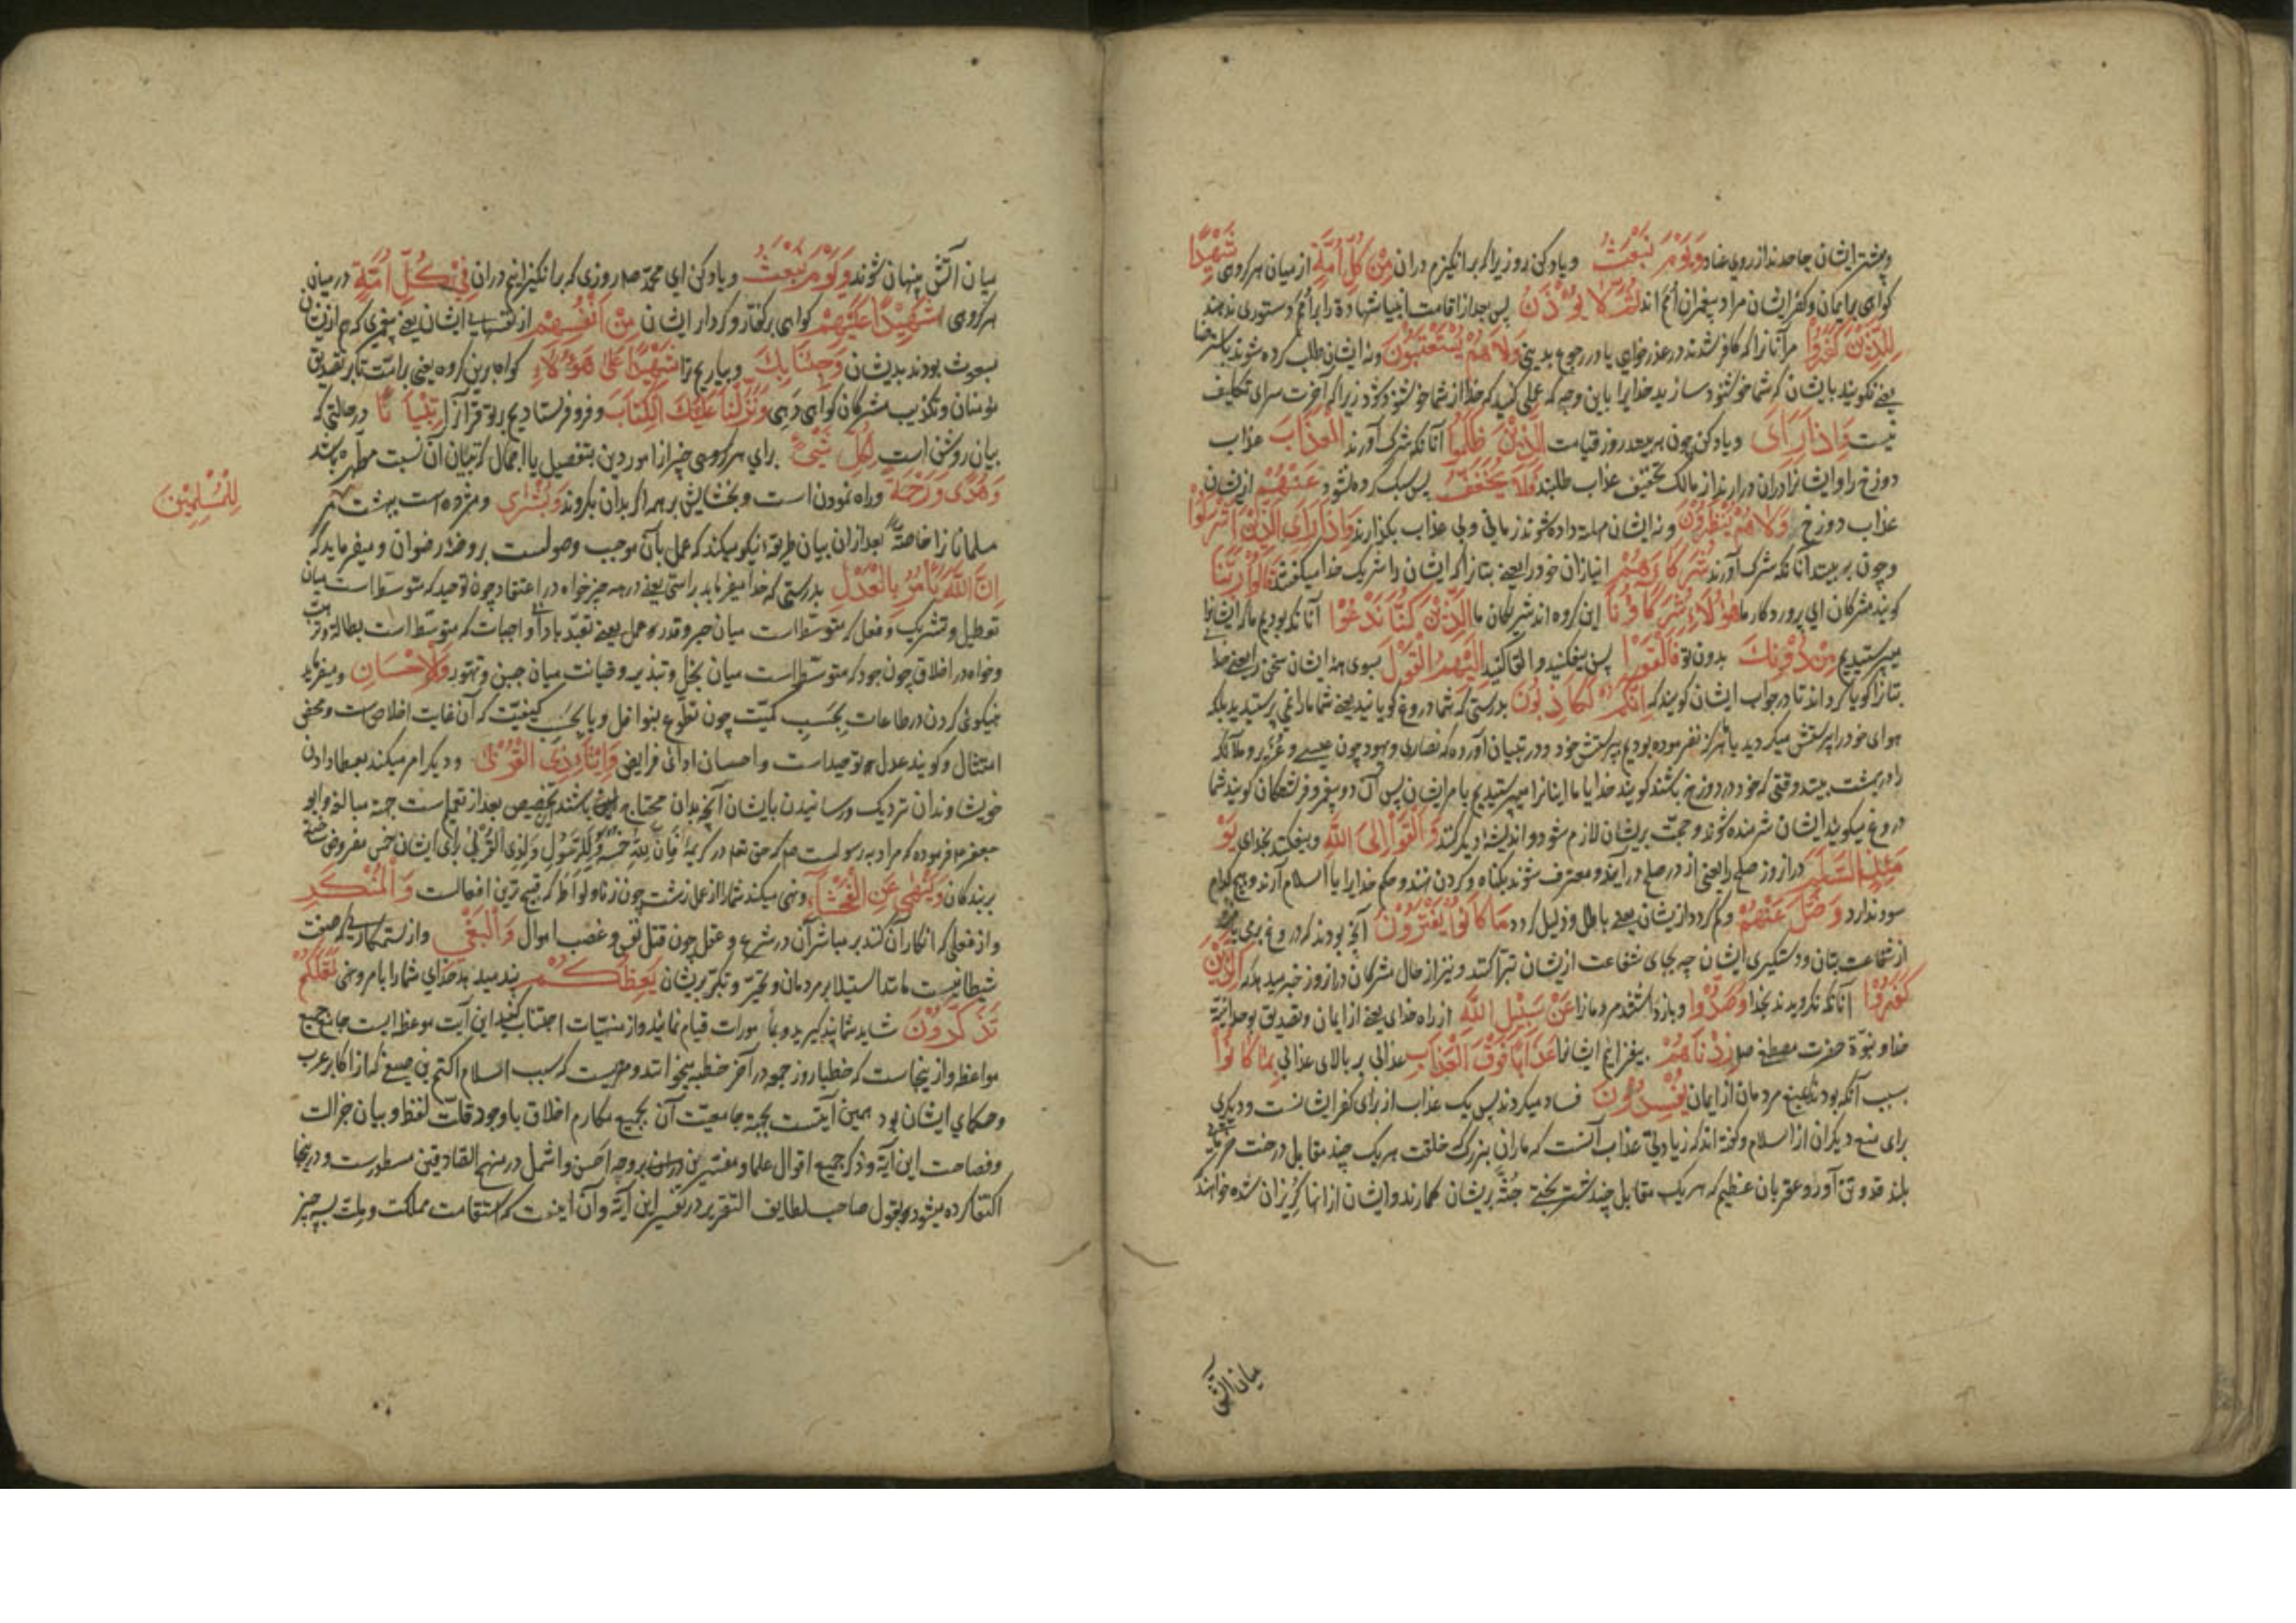 وبیشتر ایشان جاحدند از روی عناد وَيَوْمَ نَبْعَثُ ویاد کن روزیرا که برانکیزم دران مِنْ كُلِّ أُمَّةٍ از میان هر کروهی شَهِيدًا
کواهی بر ایمان وکفر ایشان مراد پیغمبران امم اند ثُمَّ لَا يُؤْذَنُ پس بعد از اقامت انبیا شهادة را بر امم دستوری ندهند
لِلَّذِينَ كَفَرُوا مر آنانرا که کافر شدند در عذر خواهی یا در رجوع بدینی وَلَا هُمْ يُسْتَعْتَبُونَ ونه ایشان طلب کرده شوند باسترضا
یعنی نکویند بایشان که شما خوشنود سازید خدایرا باین وجه که عملی کنید که خدا از شما خوشنود شود زیرا که آخرت سرای تکلیف
نیست وَإِذَا رَأَى ویاد کن چون به بیند روز قیامت الَّذِينَ ظَلَمُوا آنانکه شرک آورند الْعَذَابَ عذاب
دوزخ را وایشانرا دران درارند از مالک تخفیف عذاب طلبند فَلَا يُخَفَّفُ پس سبک کرده نشود عَنْهُمْ ازیشان
عذاب دوزخ وَلَا هُمْ يُنْظَرُونَ ونه ایشان مهلت داده شوند زمانی وبی عذاب بکذارند وَإِذَا رَأَى الَّذِينَ أَشْرَكُوا
وچون به بیند آنانکه شرک آورند شُرَكَاءَهُمْ انبازان خود را یعنی بتانرا که ایشان را شریک خدا میکفتند قَالُوا رَبَّنَا
کویند مشرکان ای پروردکار ما هَٰؤُلَاءِ شُرَكَاؤُنَا این کروه اند شریکان ما الَّذِينَ كُنَّا نَدْعُوا آنانکه بودیم ما که ایشانرا
میپرستیدیم مِنْ دُونِكَ بدون تو فَأَلْقَوْا پس بیفکنند والقا کنند إِلَيْهِمُ الْقَوْلَ بسوی ایشان سخن را یعنی خدا
بتانرا کویا کرداند تا در جواب ایشان کویند که إِنَّكُمْ لَكَاذِبُونَ بدرستی که شما دروغ کویانید یعنی شما مارا نمی پرستیدید بلکه
هوای خود را پرستش میکردید یا هرکز نفرموده بودیم بپرستش خود ودر تبیان آورده که نصاری ویهود چون عیسی وعزیر وملائکه
را در بهشت بینند وقتی که خود در دوزخ باشند کویند خدایا ما اینانرا میپرستیدیم پس آن دو پیغمبر وفرشتکان کویند شما
دروغ میکویید ایشان شرمنده شوند وحجت بریشان لازم شود واندیشه دیکر کنند وَأَلْقَوْا إِلَى اللَّهِ وبیفکنند بخدای يَوْ
مَئِذٍ السَّلَمَ دران روز صلح را یعنی از در صلح درآیند ومعترف شوند بکناه وکردن نهند وحکم خدایرا یا اسلام آرند وهیچ کدام
سود ندارد وَضَلَّ عَنْهُمْ وکم کردد ازیشان یعنی باطل وزلیل کردد مَا كَانُوا يَفْتَرُونَ آنچه بودند که دروغ بری
از شفاعت بتان ودستکیری ایشان چه بجای شفاعت ازیشان تبرا کنند ونیز از حال مشرکان دران روز خبر میدهد که الَّذِينَ
كَفَرُوا آنانکه نکرویدند بخدا وَصَدُّوا وباز داشتند مردمانرا عَنْ سَبِيلِ اللَّهِ از راه خدای یعنی از ایمان وتصدیق بوحدانیة
خدا ونبوة حضرت مصطفی صلعم زِدْنَاهُمْ بیفزاییم ایشانرا عَذَابًا فَوْقَ الْعَذَابِ عذابی بر بالای عذابی بِمَا كَانُوا
بسبب آنکه بودند مردمان از ایمان يُفْسِدُونَ فساد میکردند پس یک عذاب از برای کفر ایشانست ودیکری
برای منع دیکران از اسلام وکفته اند که زیادتی عذاب آنست که ماران بزرک خلقت هر یک چند مقابل درخت خرمای
بلند قد وتن آور وعقربان عظیم که هر یک مقابل چند شتر بختی جثه بریشان کمارند وایشان ازانها کریزان شده خواهند
میان آتش
میان آتش پنهان شوند وَيَوْمَ نَبْعَثُ ویاد کن ای محمد صلعم روزی که برانکیزانیم دران فِي كُلِّ أُمَّةٍ در میان
هر کروهی شَهِيدًا عَلَيْهِمْ کواهی بر کفتار وکردار ایشان مِنْ أَنْفُسِهِمْ از نفسهای ایشان یعنی پیغمبری که هم ازیشان
مبعوث بودند بدیشان وَجِئْنَا بِكَ وبیاریم ترا شَهِيدًا عَلَى هَٰؤُلَاءِ کواه برین کروه یعنی بر امت تا بر تصدیق
مؤمنان وتکذیب مشرکان کواهی دهی وَنَزَّلْنَا عَلَيْكَ الْكِتَابَ وفرو فرستادیم بر تو قرآنرا تِبْيَانًا در حالتی که
بیان روشن است لِكُلِّ شَيْءٍ برای هر کروهی چیز از امور دین بتفصیل یا اجمال که تبیان آن نسبت
وَهُدًى وَرَحْمَةً وراه نمودن است وبخشایش بر همه اکر بدان بکروند وَبُشْرَى ومژده است ببهشت مر
لِلْمُسْلِمِينَ
مسلمانانرا خاصة بعد ازان بیان طریقه نیکو میکند که عمل بآن موجب وصولست بروضه رضوان ومیفرماید که
إِنَّ اللَّهَ يَأْمُرُ بِالْعَدْلِ بدرستی که خدا میفرماید براستی یعنی در همه چیز خواه در اعتقاد چون توحید که متوسط است میان
تعطیل وتشریک وفعل که متوسط است میان جبر وقدر وعمل یعنی تعبد باداء واجبات که متوسط است بطالة
وخواه در اخلاق چون جود که متوسط است میان بخل وتبذیر میان جبن وتهور وَالْإِحْسَانِ ومیفرماید
بنیکوئی کردن در طاعات بحسب کمیت چون تطوع بنوافل ویا بحسب کیفیت که آن غایت اخلاص است ومحض
امتثال وکویند عدل توحید است واحسان ادای فرایض وَإِيتَاءِ ذِي الْقُرْبَى ودیکر امر میکند بعطا دادن
خویشاوندان نزدیک ورسانیدن بایشان آنچه بدان محتاج باشند تخصیص بعد از تعمیم است جهة مبالغه وابو
جعفر فرموده که مراد به رسولست صلعم که حق تعالی در کریمه فَأَنَّ لِلَّهِ خُمُسَهُ وَلِلرَّسُولِ وَلِذِي الْقُرْبَى برای ایشان خمس مفروض
برندکان وَيَنْهَى عَنِ الْفَحْشَاءِ ونهی میکند شمارا از عمل زشت چون زنا ولواطه که قبیح ترین افعالست وَالْمُنْكَرِ
واز فعلی که انکار آن کنند بر مباشر آن در شرع وعقل چون قتل نفس وغصب اموال وَالْبَغْيِ واز ستمکاری که صفت
شیطانیست مانند استیلا بر مردمان وتجبر وتکبر بریشان يَعِظُكُمْ پند میدهد خدای شمارا بامر ونهی لَعَلَّكُمْ
تَذَكَّرُونَ شاید شما پند کیرید وبمأمورات قیام نمایید واز منهیات اجتناب کنید این آیت موعظه ایست جامع جمیع
مواعظ وازینجاست که خطبا روز جمعه در آخر خطبه میخوانند ومرویست که سبب اسلام اکثم بن صیفی که از اکابر عرب
وحکمای ایشان بود همین آیتست بجهة جامعیت آن بجمیع مکارم اخلاق با وجود قلت لفظ وبیان جزالت
وفصاحت این آیة وذکر جمیع اقوال علما ومفسرین دران بروجه احسن واشمل در منهج الصادقین مسطورست ودرینجا
اکتفا کرده میشود بقول صاحب لطایف التقریر در تفسیر این آیة وآن اینست که استقامت مملکت وملت بسه چیز